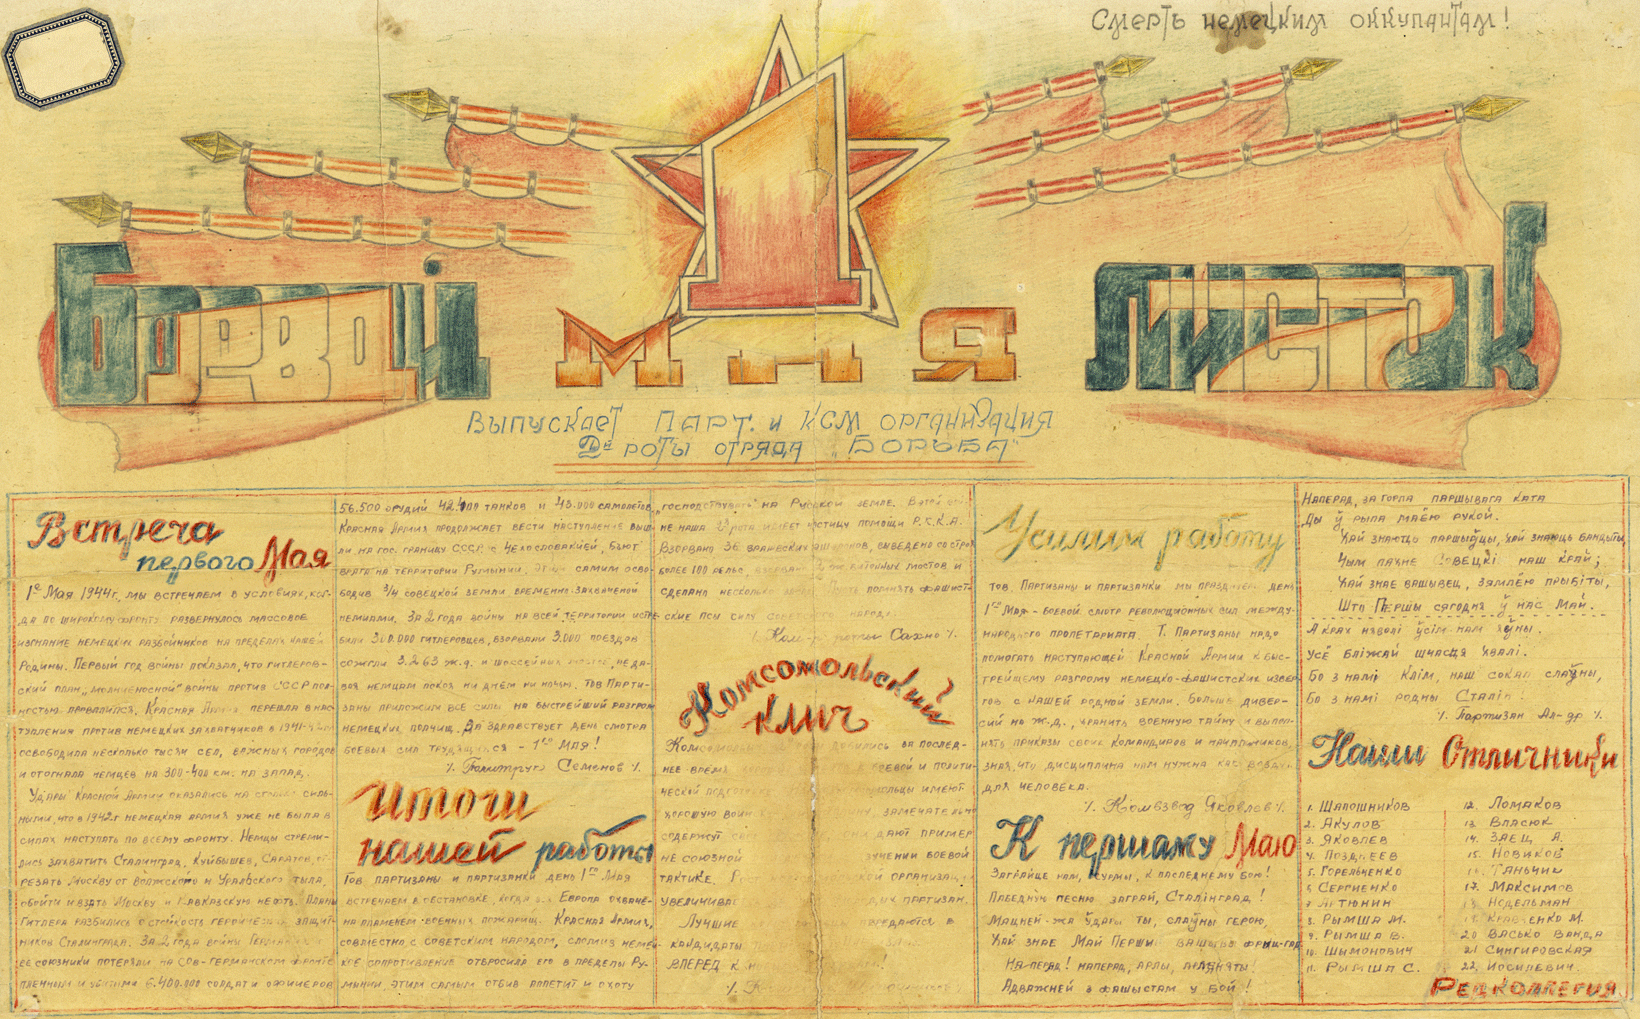 Смерть немецким оккупантам!
Боевой 1 мая листок
Выпускает парт. и КСМ организация
2ой роты отряда „Борьба"
Встреча
первого Мая
1ое Мая 1944 г. мы встречаем в условиях, ког-
да по широкому фронту развернулось массовое
изгнание немецких разбойников из пределах нашей
Родины. Первый год войны показал, что гитлеров-
ский план „молниеносной" войны против СССР пол-
ностью провалился. Красная Армия перешла в нас-
тупления против немецких захватчиков в 1941-42
освободила несколько тысяч сел, важных городов
и отогнала немцев на 300-400 км. на запад.
Удары Красной Армии оказались на столько силь-
ными, что в 1942 г немецкая армия уже не была в
силах наступать по всему фронту. Немцы стреми-
лись захватить Сталинград, Куйбышев, Саратов, от-
резать Москву от Волжского и Уральского тыла,
обойти и взять Москву и Кавказскую нефть. Планы
Гитлера разбились о стойкость героических защит-
ников Сталинграда. За 2 года войны Германия и
ее союзники потеряли на Сов-Германском фронте
пленным и убитыми 6.400.000 солдат и офицеров
56.500 орудий 42.400 танков и 43.000 самолетов
Красная Армия продолжает вести наступление выш-
ли на гос. границу СССР с Чехословакией, бьют
врага на территории Румынии. Этим самим осво-
бодив 3/4 совецкой земли временно захваченой
немцами. За 2 года войны на всей территории истре-
били 300.000 гитлеровцев, взорвали 3.000 поездов
сожгли 3.263 ж.д. и шоссейных мостов, не да-
вая немцам покоя ни днем ни ночью. Тов Парти-
заны приложим все силы на быстрейший разгром
немецких полчищ. Да здравствует день смотра
боевых сил трудящихся - 1го Мая!
1/. Политрук Семенов 1/.
Итоги
нашей работы
Тов партизаны и партизанки день 1го Мая
встречаем в обстановке, когда вся Европа охваче-
на пламенем военных пожарищ. Красная Армия,
совместно с советским народом, сломив немец-
кое сопротивление отбросила его в пределы Ру-
мынии. Этим самым отбив аппетит и охоту
„господствувать" на Русской земле. В этой
не наша 2я рота имеет частицу помощи Р.К.К.А.
Взорвано 36 вражеских эшелонов, выведено со строя
более 100 рельс, взорвано мостов и
сделано несколько Пусть помнять фашист-
ские псы силу советского народа.
1/. Ком-р роты Сахно 1/.
Комсомольский
клич
Комсомольцы добились за послед-
нее время к боевой и полити-
ческой имеют
хорошую замечательно
содержут дают пример
не союзной боевой
тактике. организации
увеличивает партизан.
Лучшие передаются в
кандидаты
Вперед к
Усилим работу
Тов. Партизаны и партизанки мы празднуем день
1го Мая - боевой смотр революционных сил между-
народного пролетариата. Т. Партизаны надо
помогать наступающей Красной Армии к быс-
трейшему разгрому немецко-фашистских извер-
гов с нашей родной земли. Больше дивер-
сий на ж.д., хранить военную тайну и выпол-
нять приказы своих командиров и начальников
зная, что дисциплина нам нужна как воздух
для человека.
1/. Комвзвод Яковлев 1/.
К першаму Маю
Заграйце нам, сурмы, к последнему бою!
Пабедную песню заграй, Сталінград!
Мацней-жа ўдарь ты, слаўны герою,
Хай знае Май Першы вашывы фрыц-гад
На перад! наперад, арлы, арляняты!
Адважней з фашыстам у бой!
Наперад, за горла паршывага ката
Ды ў рыла маёю рукой.
Хай знаюць паршыўцы, хай знаюць бандыты,
Чым пахне Совецкі наш край;
Хай знае вашывец, зямлёю прыбіты,
Што Першы сягодня ў нас Май.
А крах няволі ўсім нам яўны.
Усё бліжай шчасця хвалі.
Бо з намі Клім, наш сокал слаўны,
Бо з намі родны Сталін!
1/. Партизан Ал-др 1/.
Наши Отличники
1. Шапошников
2. Акулов
3. Яковлев
4. Позднеев
5. Горельченко
6. Сергиенко
7. Артюнин
8. Рымша М.
9. Рымша В.
10. Шымонович
11. Рымша С.
12. Ломаков
13. Власюк
14. Заец А.
15. Новиков
16. Таньчик
17. Максимов
18. Недельман
19. Кравченко М.
20 Васько Ванда
21 Сингировская
22. Иосилевич.
Редколлегия.